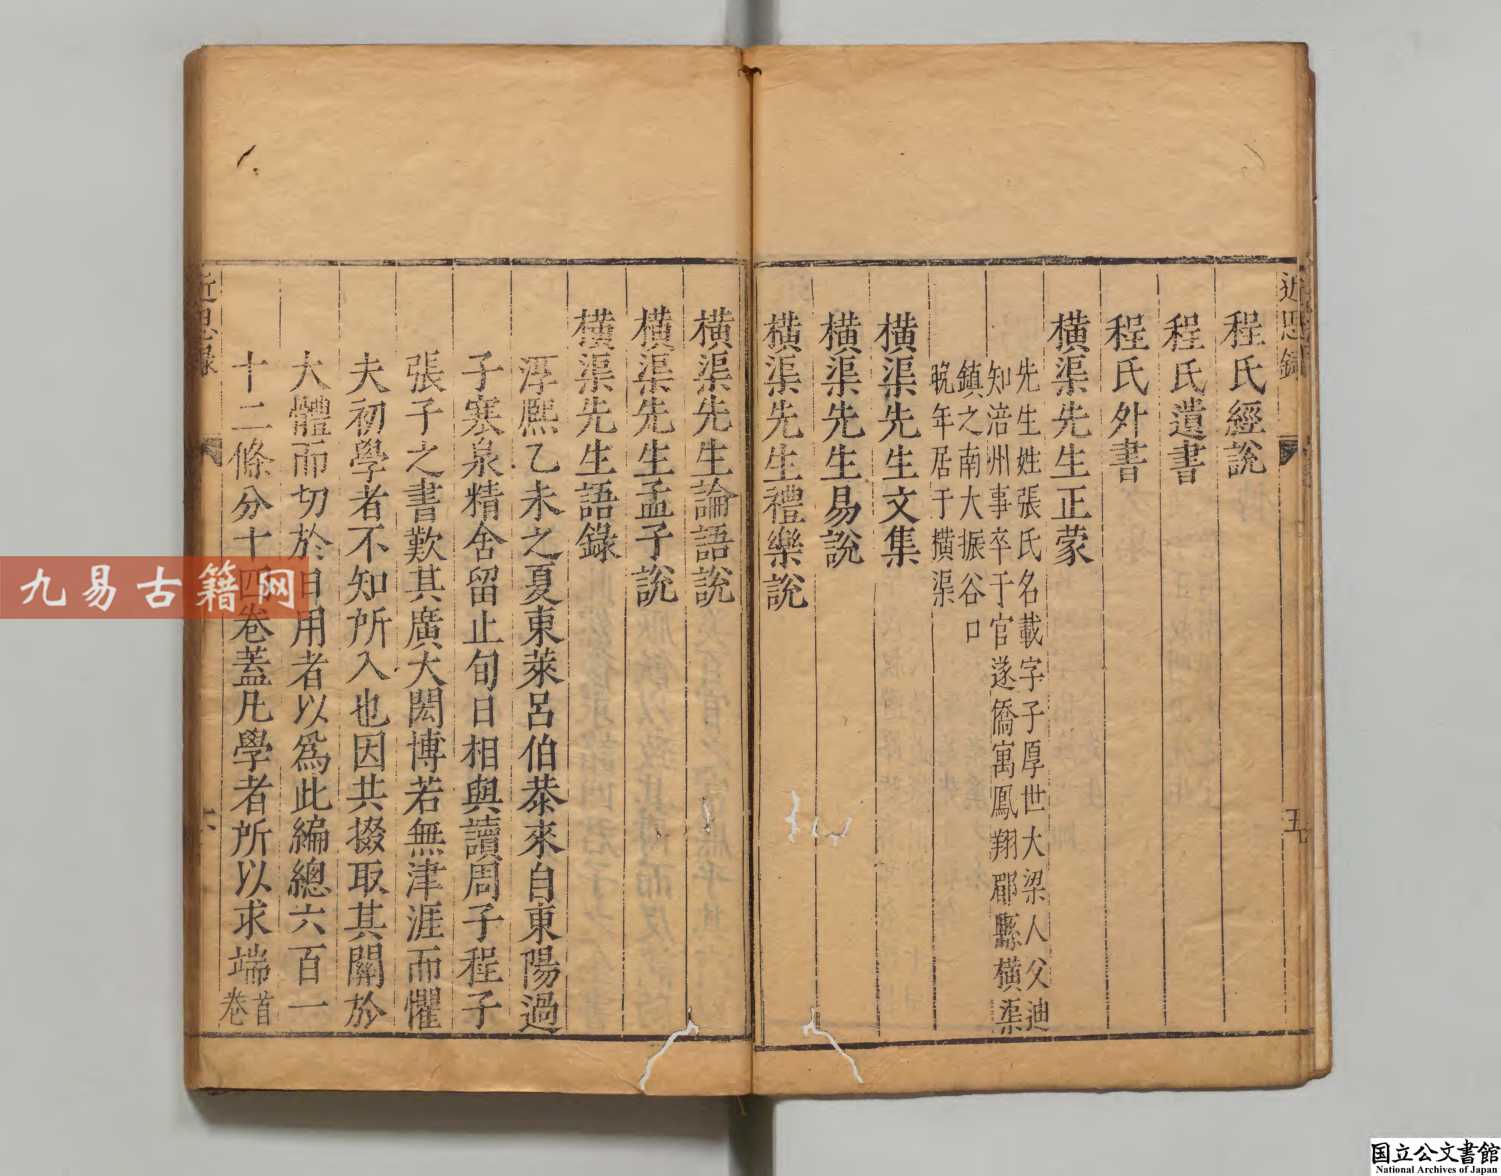 近思錄
五
程氏經說
程氏遺書
程氏外書
橫渠先生正蒙
先生姓張氏名載字子厚世大梁人父迪
知涪州事卒于官遂僑寓鳳翔郿縣橫渠
鎮之南大振谷口
晚年居于橫渠
橫渠先生文集
橫渠先生易說
橫渠先生禮樂說
橫渠先生論語說
橫渠先生孟子說
橫渠先生語錄
淳熙乙未之夏東萊呂伯恭來自東陽過
子寒泉精舍留止旬日相與讀周子程子
張子之書歎其廣大閎博若無津涯而懼
夫初學者不知所入也因共掇取其關於
大體而切於日用者以為此編總六百一
十二條分十四卷蓋凡學者所以求端首
卷
近思錄
六
九易古籍网
国立公文書館
National Archives of Japan